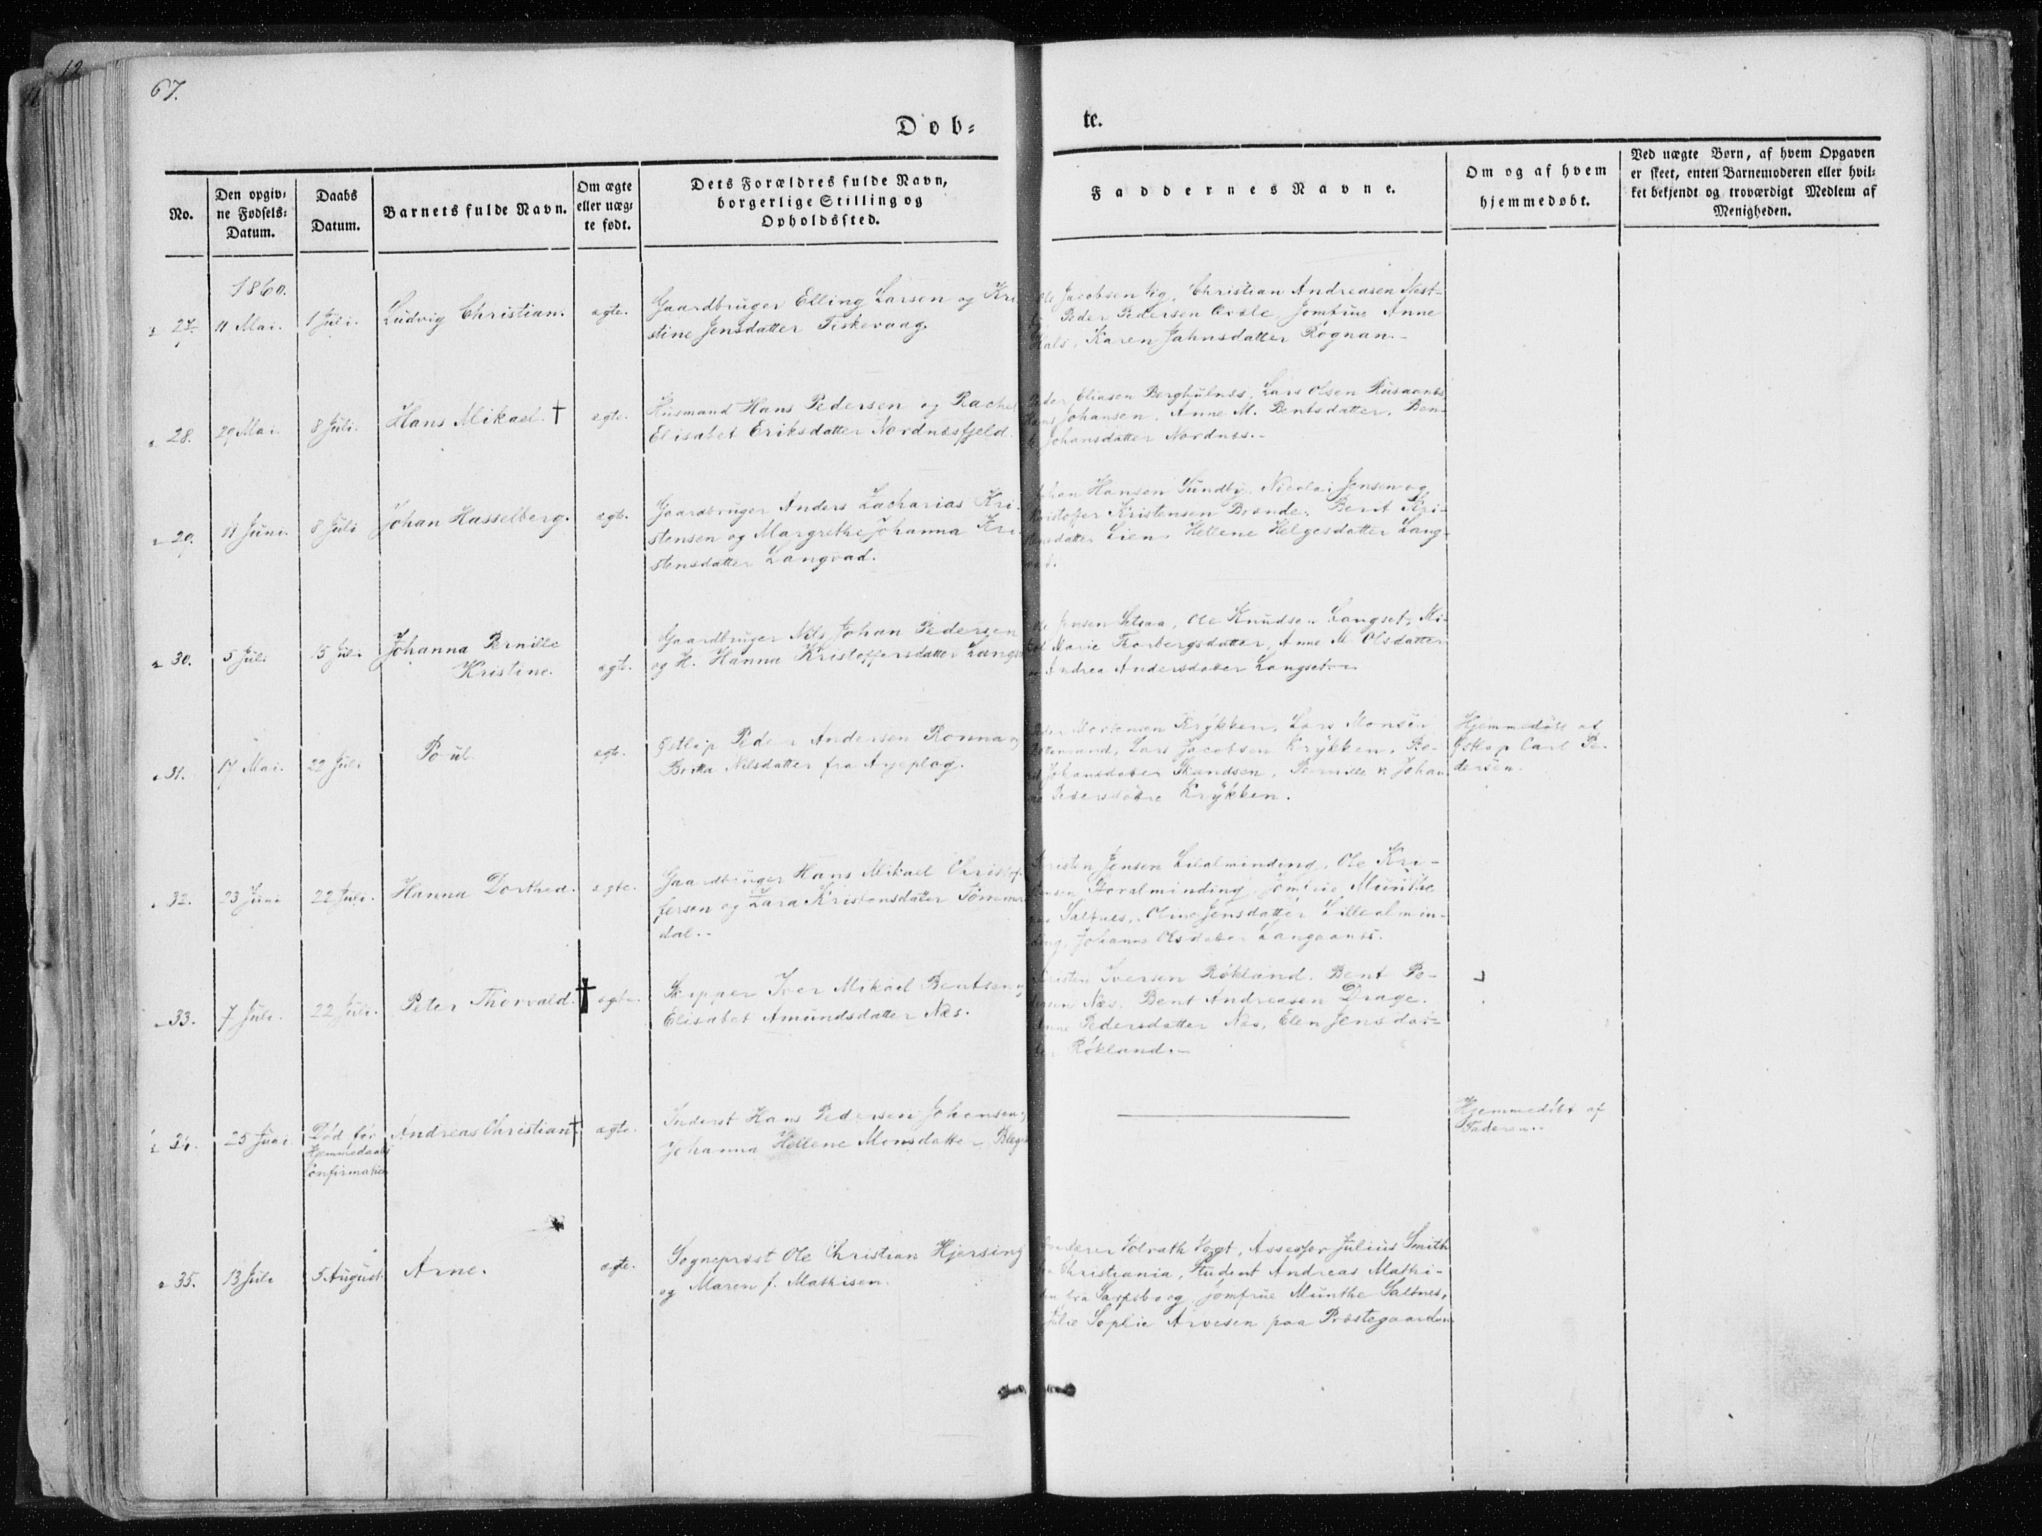 12
67.
Døb-
te.
No.
Den opgiv-
ne Fødsels-
Datum.
Daabs
Datum.
Barnets fulde Navn.
Om ægte
eller uæg-
te født.
Dets Forældres fulde Navn,
borgerlige Stilling og
Opholdssted.
Faddernes Navne.
Om og af hvem
hjemmedøbt.
Ved uægte Børn, af hvem Opgaven
er skeet, enten Barnemoderen eller hvil-
ket bekjendt og troværdigt Medlem af
Menigheden.
1860.
27. 11 Mai. 1 Juli. Ludvig Christian. ægte.
Gaardbruger Elling Larsen og Kri-
stine Jensdatter Fiskevaag.
Ole Jacobsen Vig, Christian Andreasen Nest-
Peder Pedersen Jomfrue Anne
Hals, Karen Jahnsdatter Rognan.
28. 20 Mai. 8 Juli. Hans Mikael. † ægte.
Husmand Hans Pedersen og Rachel
Elisabet Eriksdatter Nordnæsfjeld.
Peder Eliasen Berghulnes, Lars Olsen
Hans Johansen, Anne M. Bentsdatter, Ben-
Johansdatter Nordnæs.
29. 11 Juni. 8 Juli Johan Hasselberg. ægte.
Gaardbruger Anders Zacharias Kri-
stensen og Margrethe Johanna Kri-
stensdatter Langvad.
Johan Hansen Sundby, Nicolai Jensen og
Kristoffer Kristensen Brænde, Berit Kri-
stensdatter Lien, Hellene Helgesdatter Lang-
vad.
30. 5 Juli 15 Juli Johanna Pernille
Kristine. ægte.
Gaardbruger Nils Johan Pedersen
og H. Hanna Kristoffersdatter
Ole Jensen Setsaa, Ole Knudsen Langset,
Marie Thorbergsdatter, Anne M. Olsdatter
Andrea Andersdatter Langset
31. 17 Mai. 22 Juli Poul. ægte.
Østlap Peder Andersen Ronna og
Berta Nilsdatter fra Arjeplog.
Peder Mortensen Krykken, Lars Monsen
Lars Jacobsen Krykken,
Johansdatter Skandsen, Pernille og Johan-
Pedersdøtre Krykken.
Hjemmedøbt af
Østlap Carl Pe-
dersen.
32. 23 Juni 22 Juli. Hanna Dorthea. ægte.
Gaardbruger Hans Mikael Christof-
fersen og Lara Kristensdatter Tømmer-
dal.
Kristen Jensen Lilalminding, Ole Kri-
stensen Storalminding, Jomfrue Munthe
Saltnes, Oline Jensdatter Lillealmin-
ding, Johanna Olsdatter Langaanes.
33. 7 Juli. 22 Juli. Peter Thorvald. † ægte.
Skipper Iver Mikael Bentsen og
Elisabet Amundsdatter Næs.
Kristen Iversen Røkland. Bent Pe-
dersen Næs, Bent Andreasen Drage.
Anne Pedersdatter Næs, Elen Jensdat-
ter Røkland.
34. 25 Juni. Død før
Hjemmedaabs
Confirmation Andreas Christian † ægte.
Inderst Hans Pedersen Johansen
Johanna Hellene Monsdatter
Hjemmedøbt af
Faderen.
35. 13 Juli 5 August. Arne. ægte.
Sognepræst Ole Christian Hjersing
og Maren f. Mathisen.
Volrath Vogt, Assessor Julius Smith
Christiania, Student Andreas Mathi-
sen fra Sarpsborg, Jomfrue Munthe Saltnes,
Julie Sophie Arvesen paa Præstegaarden